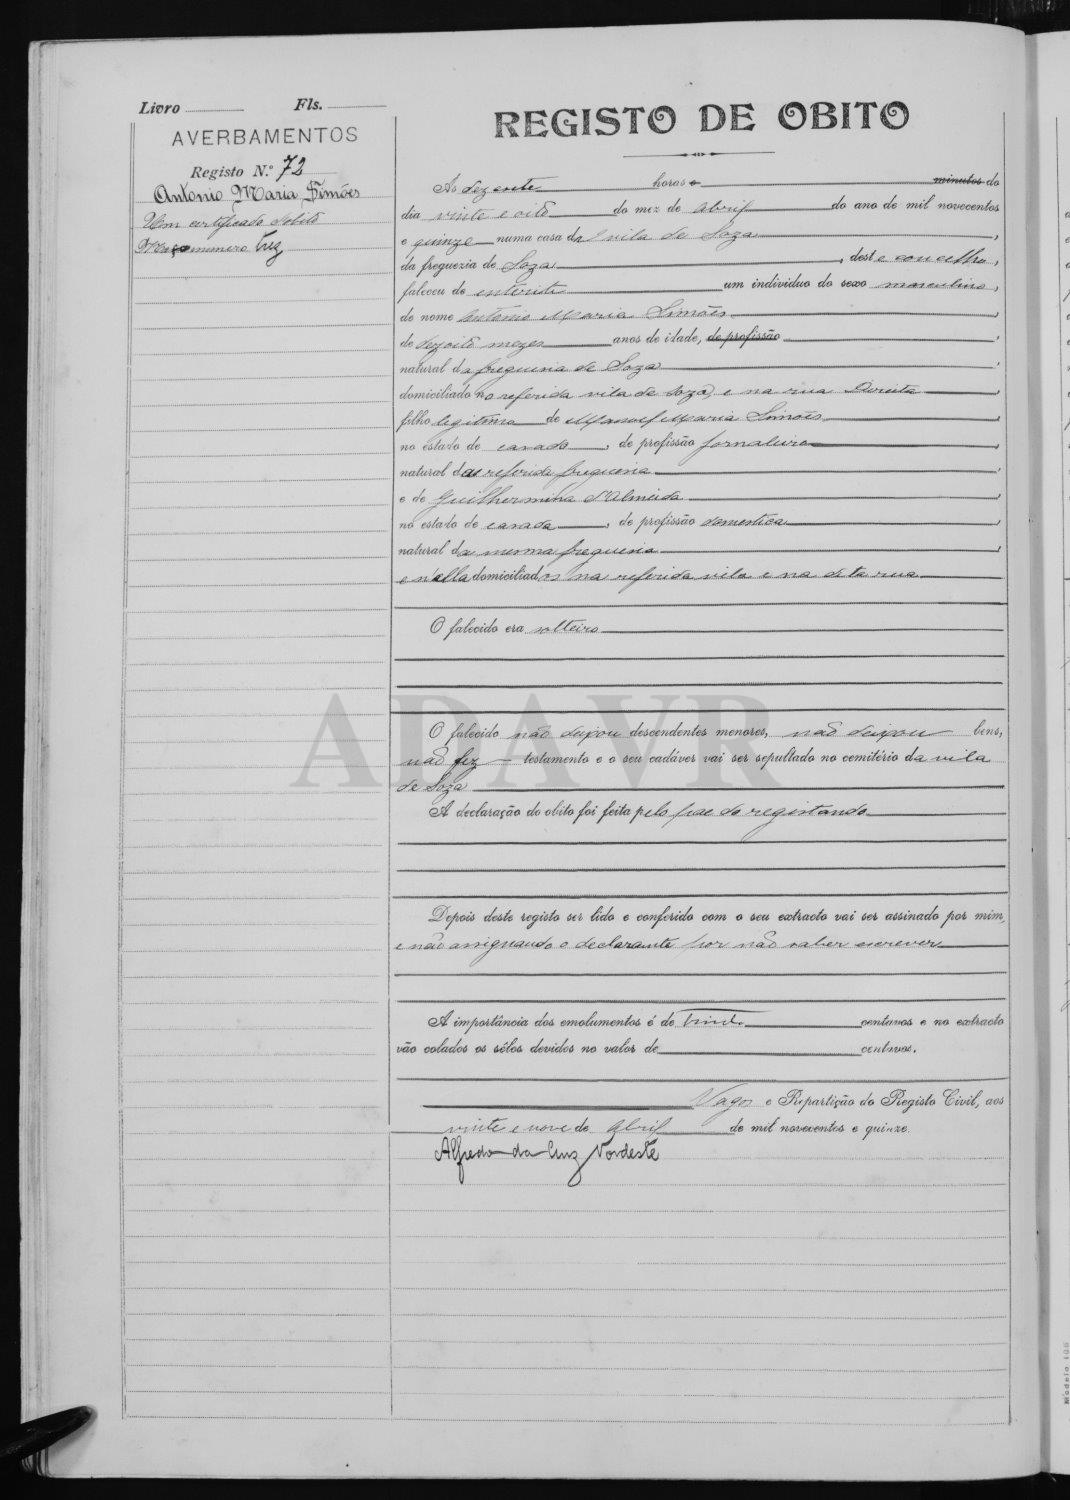 Livro Fls.
AVERBAMENTOS
Registo N.º 72
Antonio Maria Simões
Um certificado d'obito
Maço numero trez
REGISTO DE OBITO
Ás dezesete horas e minutos do
dia vinte e oito do mez de Abril do ano de mil novecentos
e quinze numa casa da vila de Soza,
da freguezia de Soza, deste concelho,
faleceu de enterite um individuo do sexo masculino,
de nome Antonio Maria Simões,
de dezoito mezes anos de idade, de profissão
natural da freguesia de Soza,
domiciliado na referida vila de Soza, e na rua Direita,
filho legitimo de Manoel Maria Simões,
no estado de casado, de profissão jornaleiro,
natural da referida freguesia,
e de Guilhermina d'Almeida,
no estado de casada, de profissão domestica,
natural da mesma freguesia,
e n'ella domiciliados na referida vila e na dita rua
O falecido era solteiro
O falecido não deixou descendentes menores, não deixou bens,
não fez testamento e o seu cadáver vai ser sepultado no cemitério da vila
de Soza
A declaração do obito foi feita pelo pae do registando
Depois deste registo ser lido e conferido com o seu extracto vai ser assinado por mim,
e não assignando o declarante por não saber escrever
A importância dos emolumentos é de vinte centavos e no extracto
vão colados os sêlos devidos no valor de centavos.
Vagos e Repartição do Registo Civil, aos
vinte e nove de Abril de mil novecentos e quinze.
Alfredo da Cruz Nordeste
ADAVR